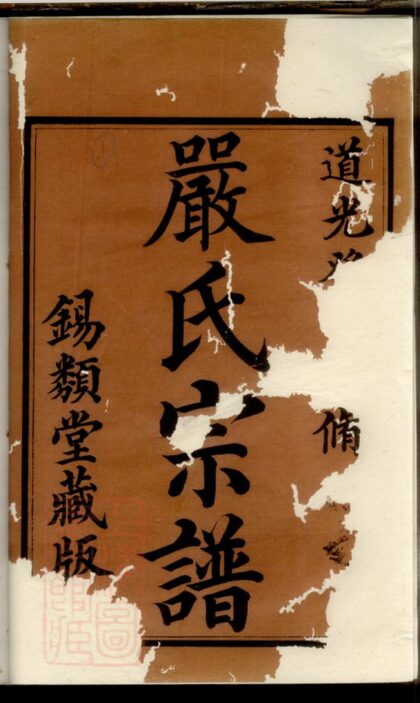 道光
脩
嚴氏宗譜
錫類堂藏版